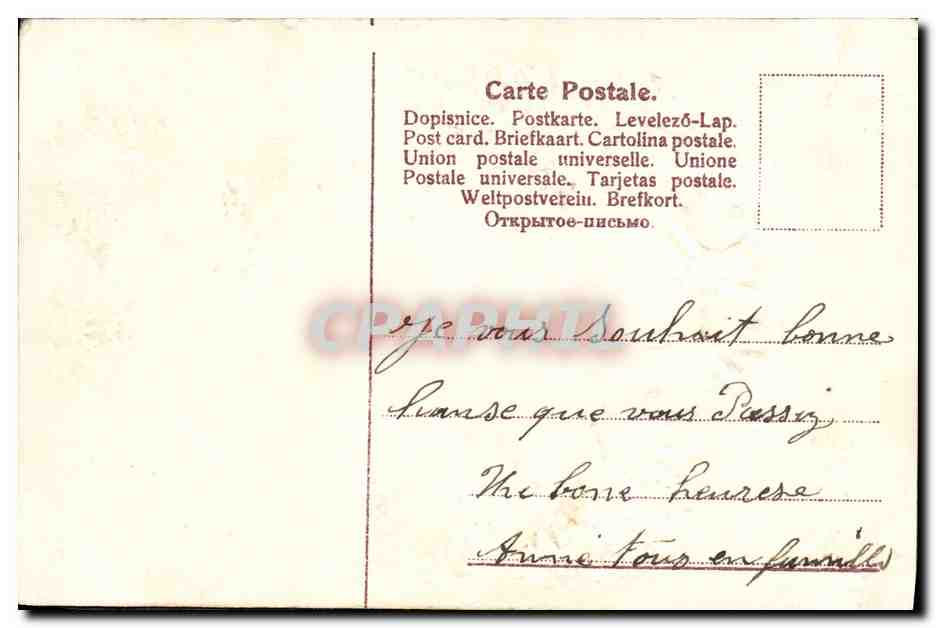 Carte Postale.
Dopisnice. Postkarte. Levelező-Lap.
Post card. Briefkaart. Cartolina postale.
Union postale universelle. Unione
Postale universale. Tarjetas postale.
Weltpostverein. Brefkort.
Открытое-письмо.
CPAPHIL
Je vous souhait bonne
hanse que vous Passiz
Une bone heurese
Anné tous en famille